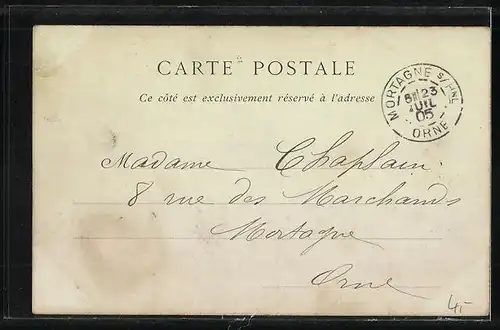 CARTE POSTALE
Ce côté est exclusivement réservé à l'adresse
MORTAGNE S/HNE
23
JUIL
05
ORNE
Madame Chaplain
8 rue des Marchands
Mortagne
Orne
4,-